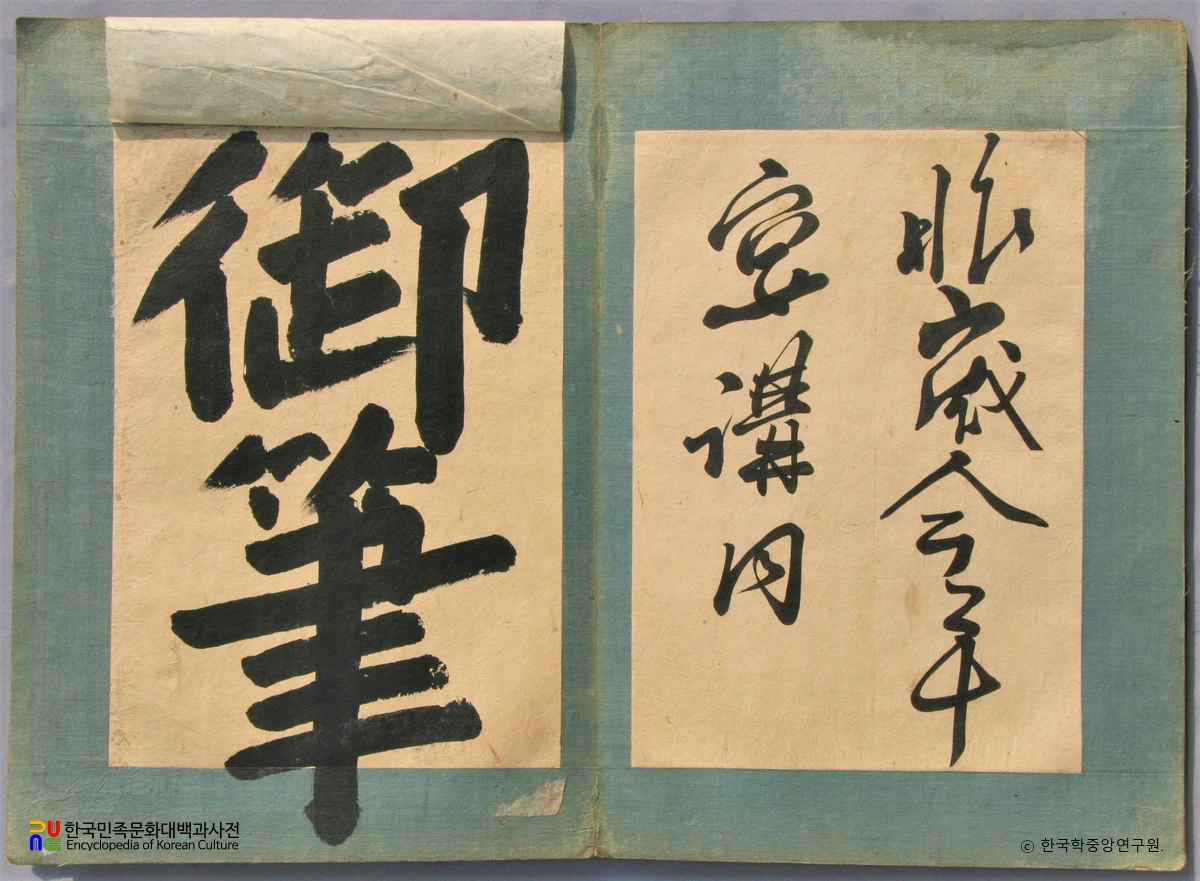 昨歲今年
宣講同
御筆
한국민족문화대백과사전
Encyclopedia of Korean Culture
ⓒ 한국학중앙연구원.